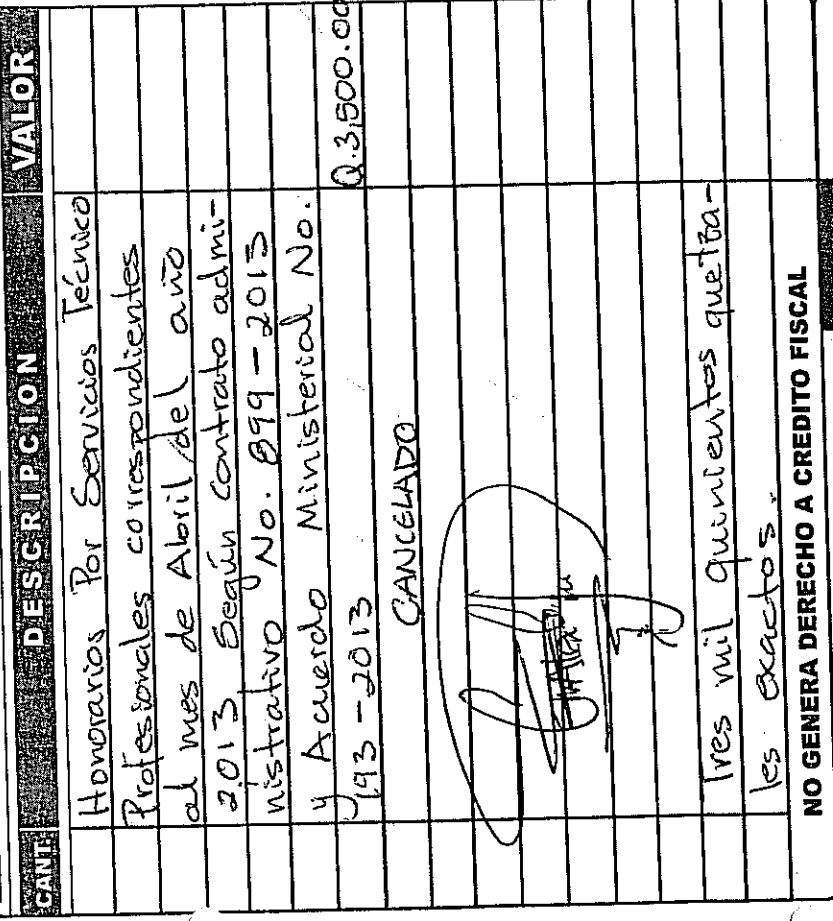 CANT DESCRIPCION VALOR
Honorarios Por Servicios Técnico
Profesionales correspondientes
al mes de Abril del año
2013 Según Contrato admi-
nistrativo No. 899-2013
y Acuerdo Ministerial No.
193-2013 Q.3,500.00
CANCELADO
Tres mil quinientos quetza-
les exactos.
NO GENERA DERECHO A CREDITO FISCAL